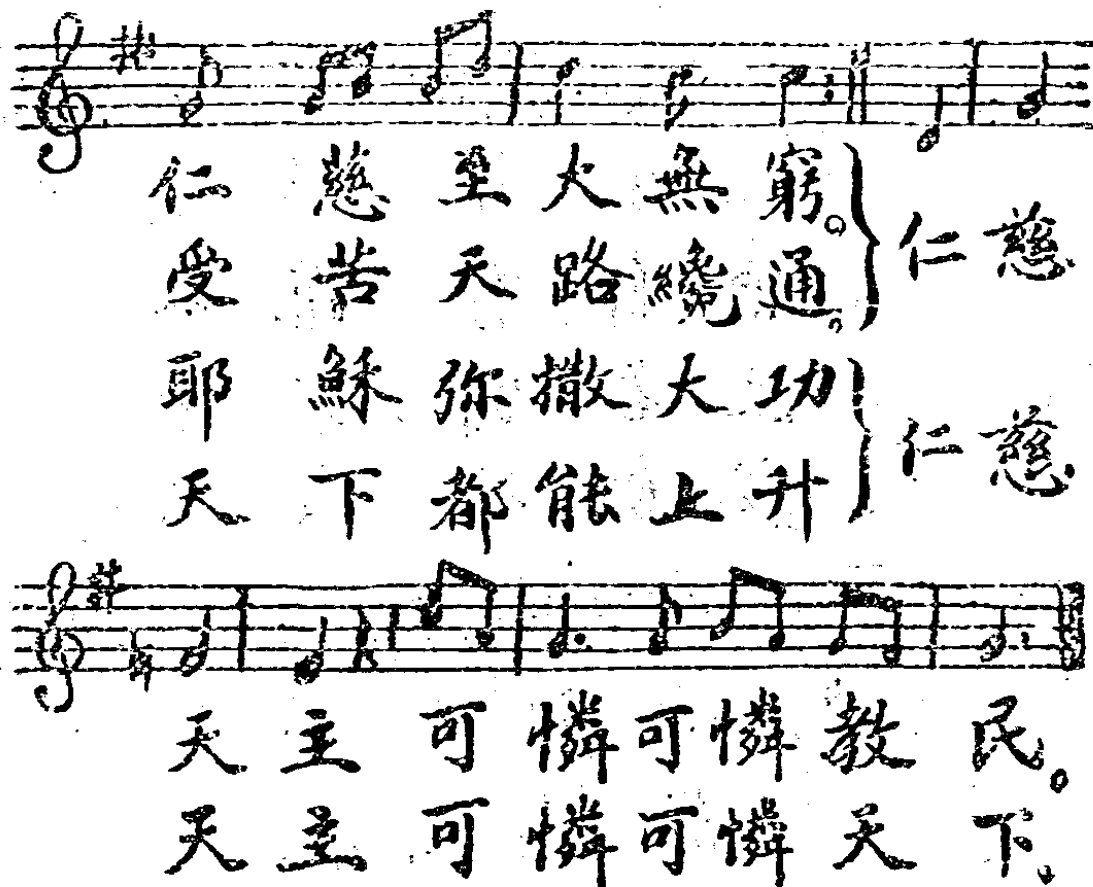 仁慈至大無窮。
受苦天路纔通。
仁慈
耶穌弥撒大功
天下都能上升
仁慈
天主可憐可憐教民。
天主可憐可憐天下。